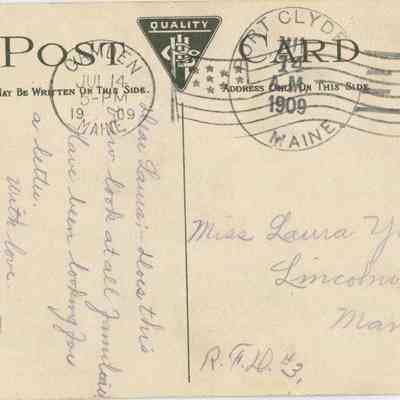 POST CARD
QUALITY
MAY BE WRITTEN ON THIS SIDE.
ADDRESS ONLY ON THIS SIDE
CAMDEN
JUL 14
5-PM
1909
MAINE
PORT CLYDE
14
A.M.
1909
MAINE.
Dear Laura; Does this
view look at all familiar
Have been looking for
a letter.
With love.
Miss Laura Y
Lincolnv
R.F.D. #3,